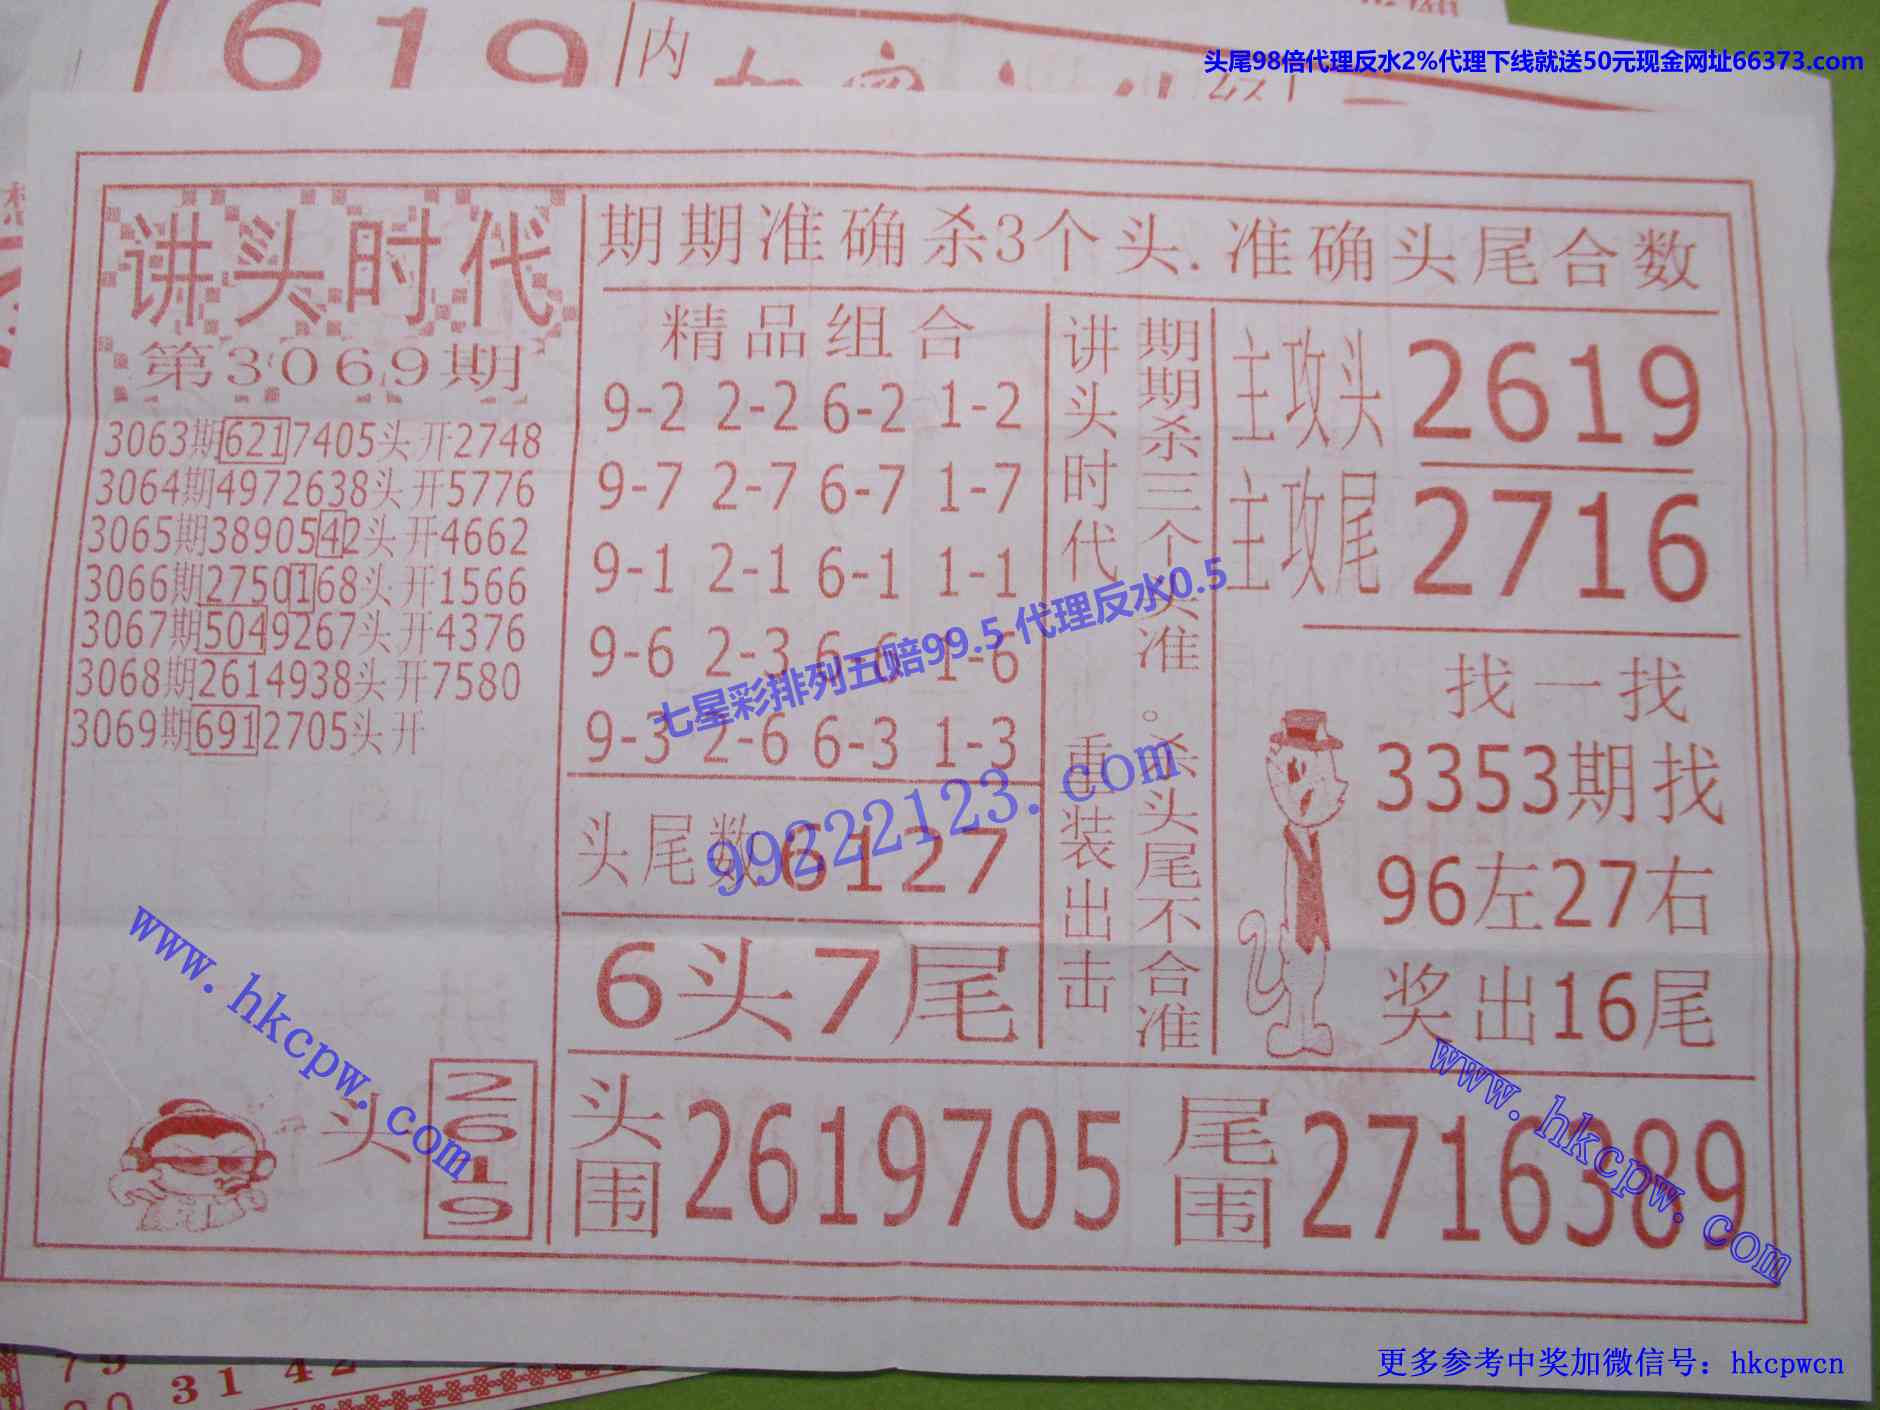 619
内
头尾98倍代理反水2%代理下线就送50元现金网址66373.com
讲头时代
第3069期
3063期6217405头开2748
3064期4972638头开5776
3065期3890542头开4662
3066期2750168头开1566
3067期5049267头开4376
3068期2614938头开7580
3069期6912705头开
头
2619
期期准确杀3个头.准确头尾合数
精品组合
9-2 2-2 6-2 1-2
9-7 2-7 6-7 1-7
9-1 2-1 6-1 1-1
9-6 2-3 6-6 1-6
9-3 2-6 6-3 1-3
头尾数6127
6头7尾
讲头时代 重装出击
期期杀三个头准。杀头尾不合准
主攻头 2619
主攻尾 2716
找一找
3353期找
96左27右
奖出16尾
头围 2619705
尾围 2716389
七星彩排列五赔99.5 代理反水0.5
99222123.com
www.hkcpw.com
www.hkcpw.com
79
31 42
更多参考中奖加微信号：hkcpwcn